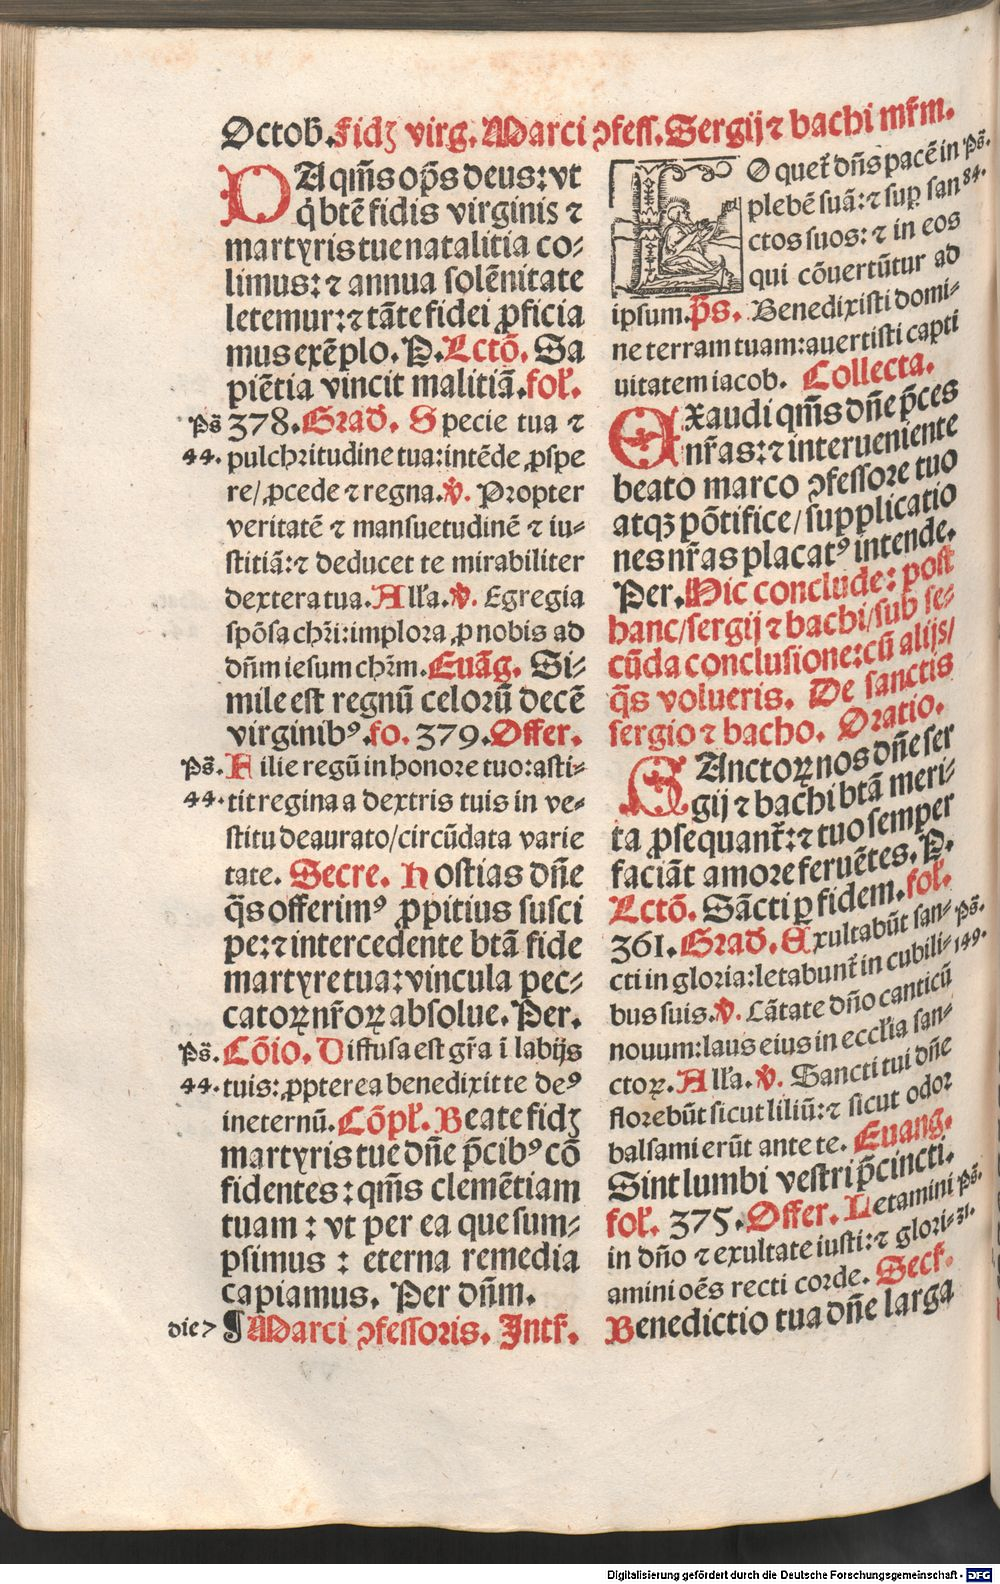 Octob̄. Fidꝫ virg. Marci ꝯfess. Sergij ⁊ bachi mr̄m.
DA qm̄s op̄s deus: vt
q̇ btē fidis virginis ⁊
martyris tue natalitia co⸗
limus: ⁊ annua solēnitate
letemur: ⁊ tāte fidei ꝓficia
mus exēplo. P. Lctō. Sa
piētia vincit malitiā. fol̄.
Ps̄ 378. Grad̄. Specie tua ⁊
44. pulchritudine tua: intēde ꝓspe
re/ ꝓcede ⁊ regna. v̄. Propter
veritatē ⁊ mansuetudinē ⁊ iu⸗
stitiā: ⁊ deducet te mirabiliter
dextera tua. All'a. v̄. Egregia
spōsa chr̄i: implora ꝓ nobis ad
dn̄m iesum chr̄m. Euāg. Si⸗
mile est regnū celorū decē
virginibꝰ. fo. 379. Offer.
Ps̄. Filie regū in honore tuo: asti⸗
44. tit regina a dextris tuis in ve⸗
stitu deaurato/ circūdata varie
tate. Secre. Hostias dn̄e
q̄s offerimꝰ ꝓpitius susci
pe: ⁊ intercedente btā fide
martyre tua: vincula pec⸗
catoꝝ nr̄oꝝ absolue. Per.
Ps̄. Cōio. Diffusa est gr̄a ī labijs
44. tuis: ꝓpterea benedixit te deꝰ
in eternū. Cōpl̄. Beate fidꝫ
martyris tue dn̄e p̄cibꝰ cō
fidentes: qm̄s clemētiam
tuam: vt per ea que sum⸗
psimus: eterna remedia
capiamus. Per dn̄m.
die 7 ¶ Marci ꝯfessoris. Intr̄.
LOquet̄ dn̄s pacē in Ps̄.
plebē suā: ⁊ suꝑ san 84.
ctos suos: ⁊ in eos
qui cōuertūtur ad
ipsum. p̄s. Benedixisti domi⸗
ne terram tuam: auertisti capti
uitatem iacob. Collecta.
EXaudi qm̄s dn̄e p̄ces
nr̄as: ⁊ interueniente
beato marco ꝯfessore tuo
atqꝫ pōtifice/ supplicatio
nes nr̄as placatꝰ intende.
Per. Hic conclude: post
hanc/ sergij ⁊ bachi/ sub se⸗
cūda conclusione: cū alijs/
q̄s volueris. De sanctis
sergio ⁊ bacho. Oratio.
SAnctoꝝ nos dn̄e ser
gij ⁊ bachi btā meri⸗
ta ꝓsequant̄: ⁊ tuo semper
faciāt amore feruētes. P.
Lctō. Sācti ꝑ fidem. fol̄.
361. Grad̄. Exultabūt san⸗ Ps̄.
cti in gloria: letabunt̄ in cubili⸗ 149.
bus suis. v̄. Cātate dn̄o canticū
nouum: laus eius in eccl'ia san⸗
ctoꝝ. All'a. v̄. Sancti tui dn̄e
florebūt sicut liliū: ⁊ sicut odor
balsami erūt ante te. Euang.
Sint lumbi vestri p̄cincti.
fol̄. 375. Offer. Letamini Ps̄.
in dn̄o ⁊ exultate iusti: ⁊ glori⸗ 31.
amini oēs recti corde. Secr̄.
Benedictio tua dn̄e larga
Digitalisierung gefördert durch die Deutsche Forschungsgemeinschaft - DFG